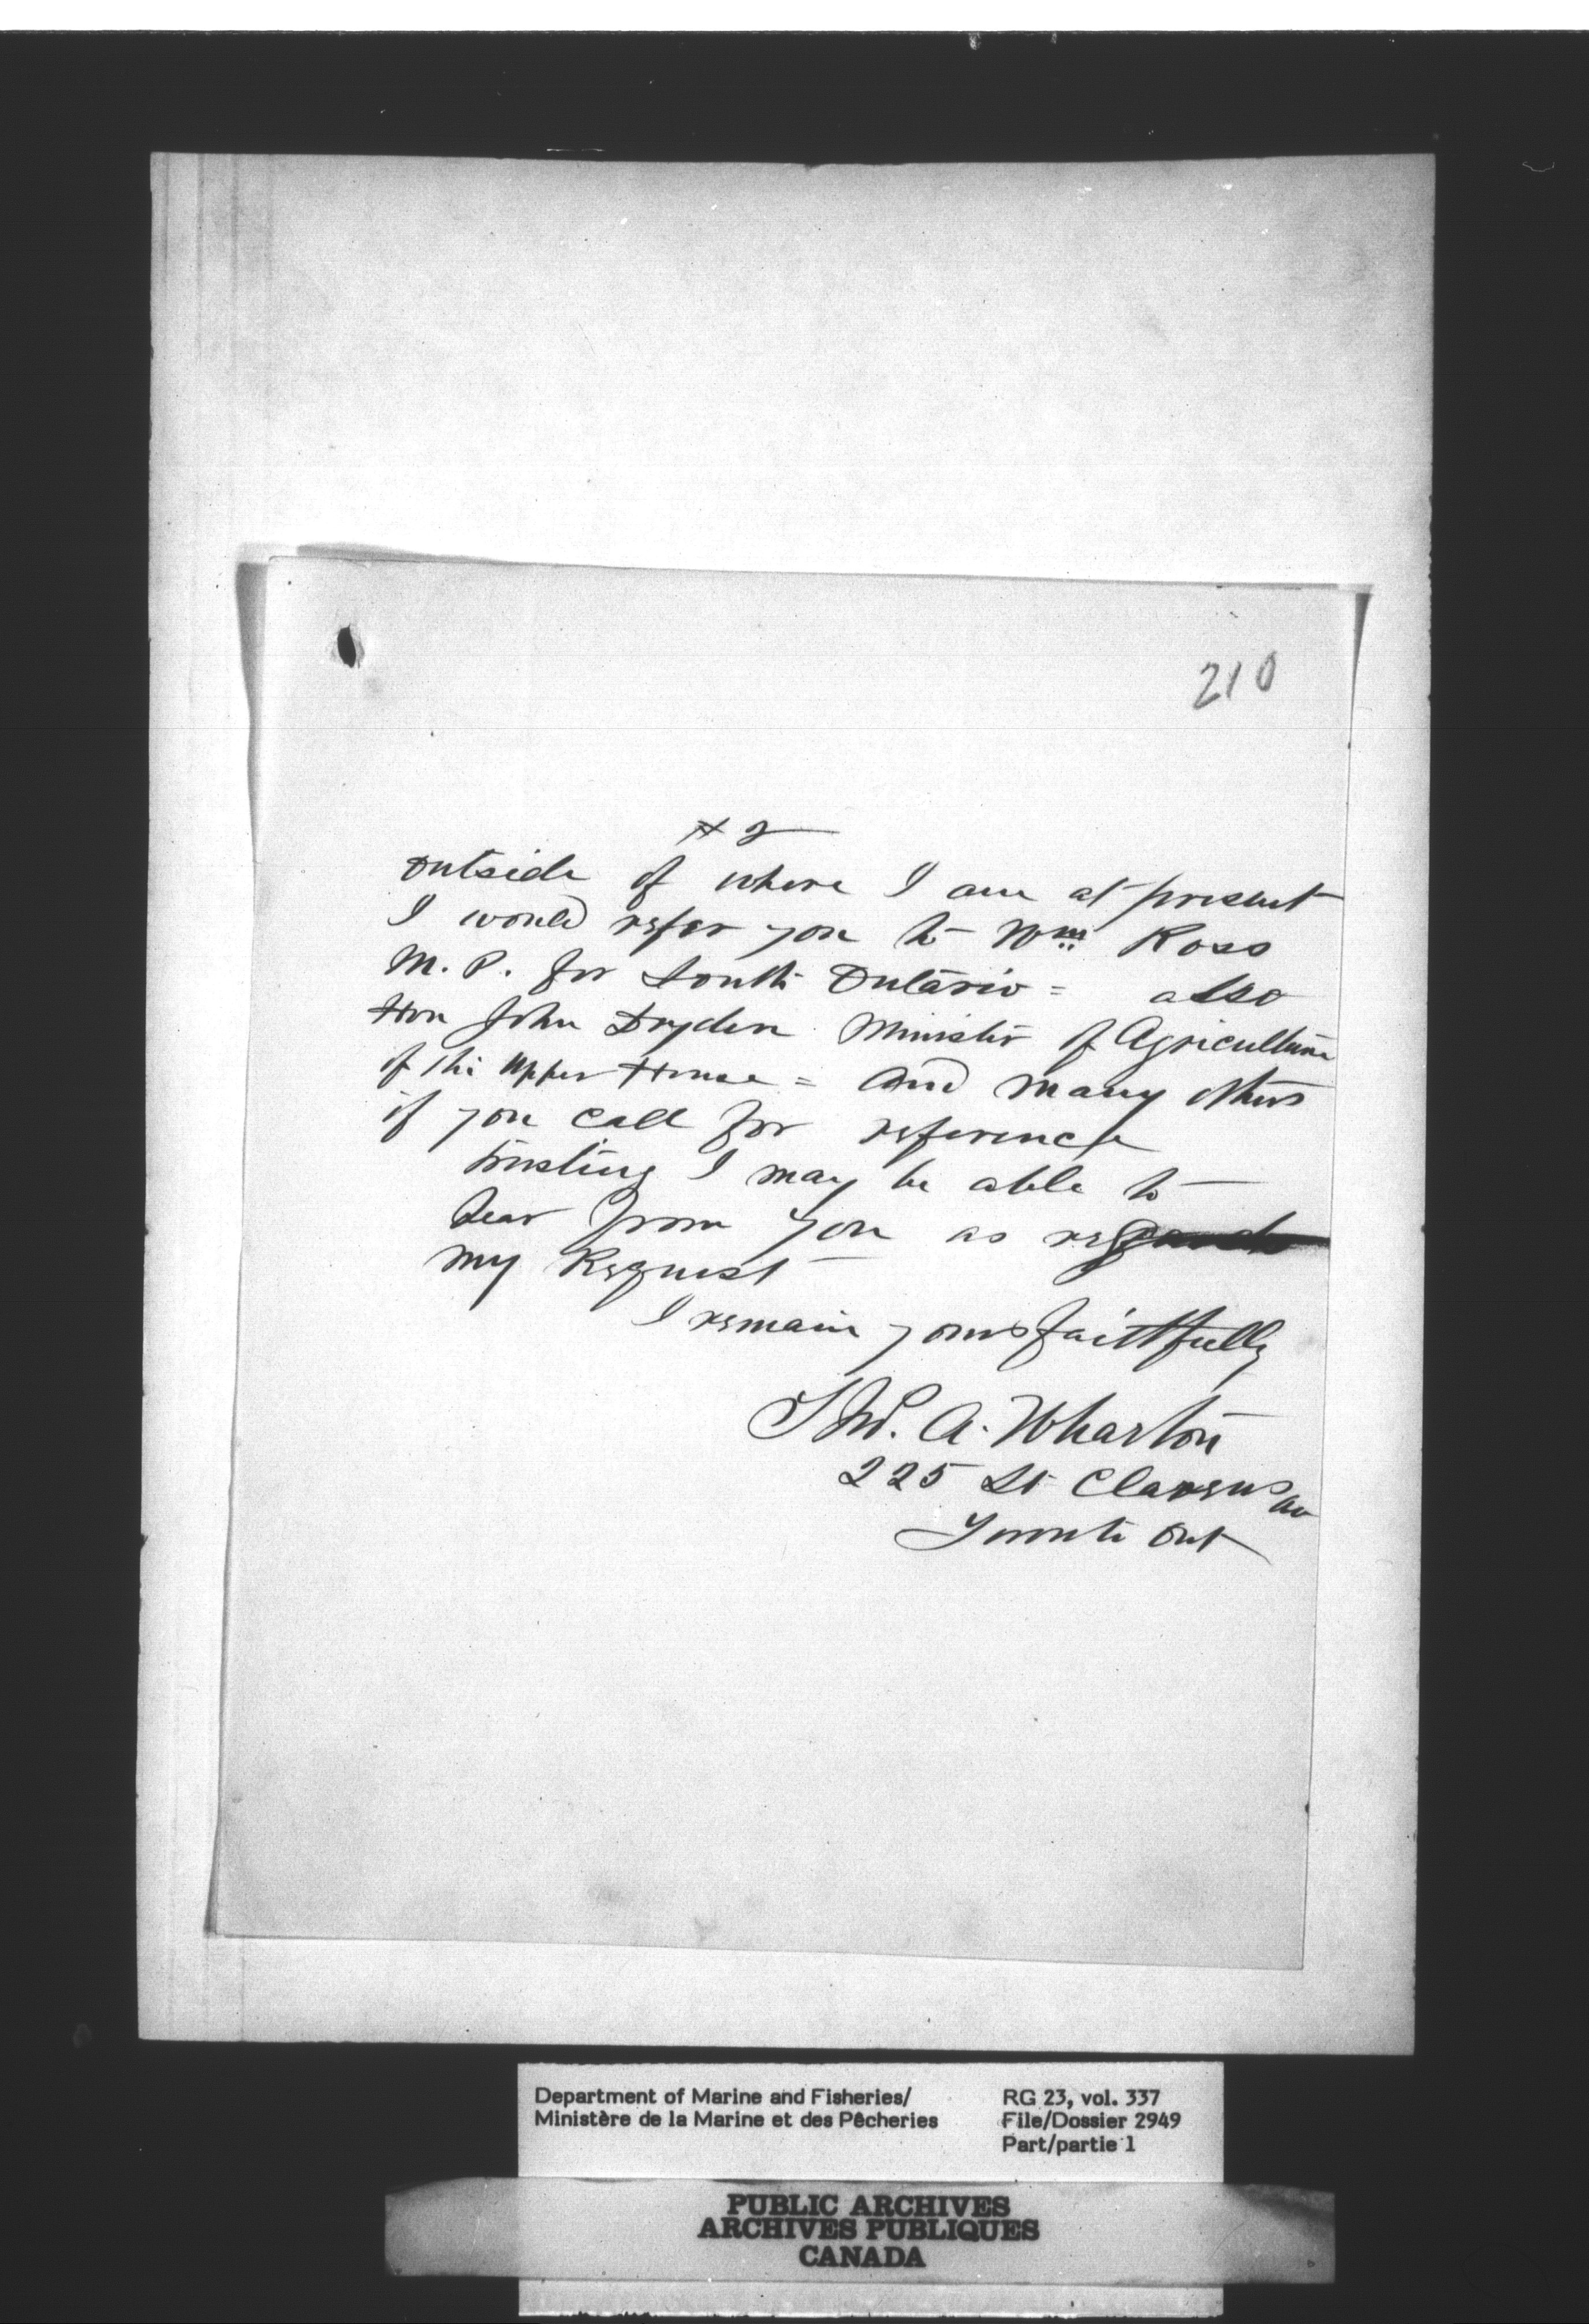 210
# 2
Outside of where I am at present
I would refer you to Wm Ross
M. P. for South Ontario = also
Hon John Dryden Minister of Agriculture
of the Upper House = and many others
if you call for reference
trusting I may be able to
hear from you as regards
my Request
I remain yours faithfully
A. Wharton
225 St Clarens av
Toronto Ont
Department of Marine and Fisheries/
Ministère de la Marine et des Pêcheries
RG 23, vol. 337
File/Dossier 2949
Part/partie 1
PUBLIC ARCHIVES
ARCHIVES PUBLIQUES
CANADA